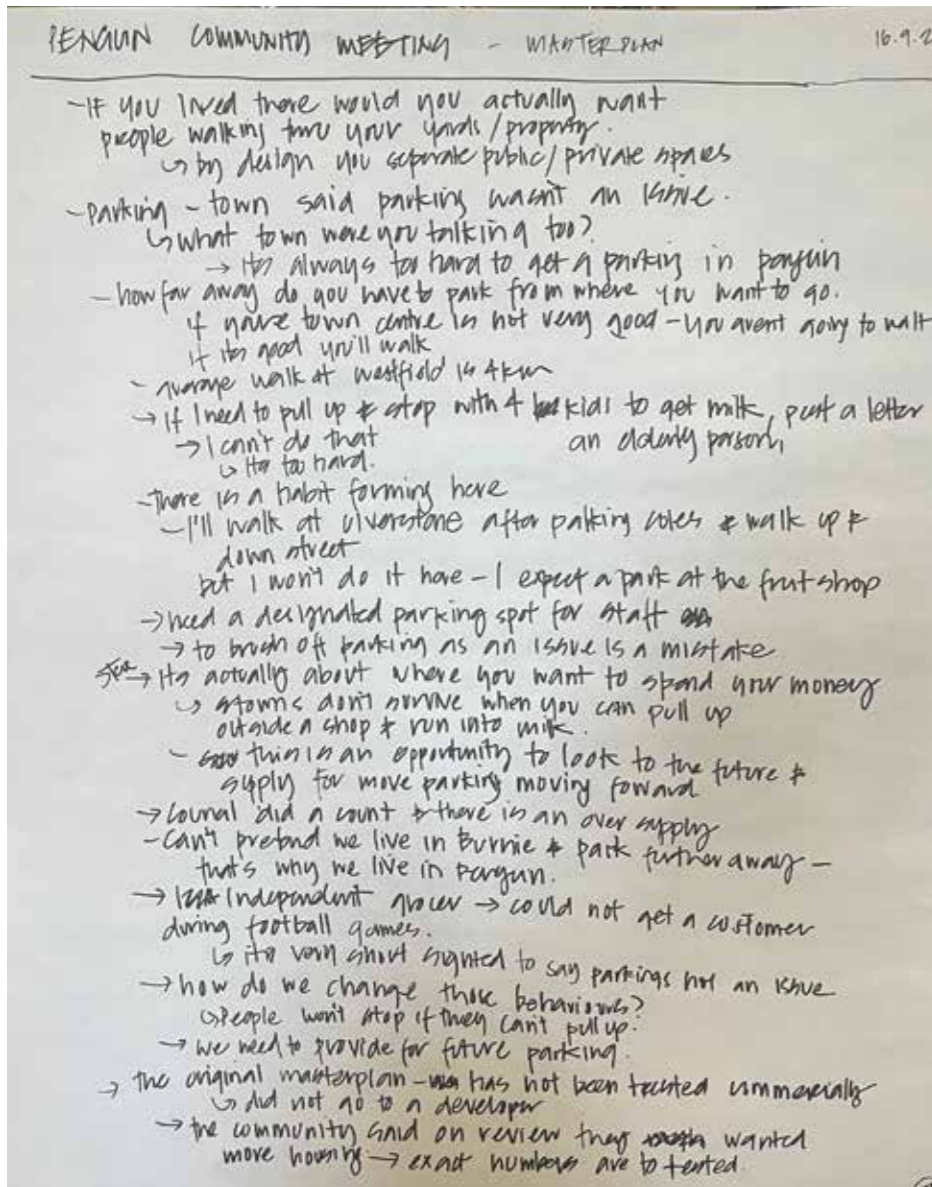 PENGUIN COMMUNITY MEETING - MASTERPLAN 16.9.2
- If you lived there would you actually want
people walking thru your yards/property.
↳ by design you separate public/private spaces
- Parking - town said parking wasn't an issue.
↳ what town were you talking too?
→ its always too hard to get a parking in penguin
- how far away do you have to park from where you want to go.
if youre town centre is not very good - you arent going to walk
if its good you'll walk
- average walk at westfield is 4km
→ If I need to pull up & stop with 4 kids to get milk, post a letter
→ I can't do that an elderly person,
↳ its too hard.
- there is a habit forming here
- I'll walk at ulverstone after parking coles & walk up &
down street
but I won't do it here - I expect a park at the fruit shop
→ need a designated parking spot for staff
→ to brush off parking as an issue is a mistake
→ its actually about where you want to spend your money
↳ towns don't survive when you can pull up
outside a shop & run into milk.
- this is an opportunity to look to the future &
supply for more parking moving foward
→ Council did a count & there is an over supply
- Can't pretend we live in Burnie & park further away -
that's why we live in Penguin.
→ IGA Independent grocer → could not get a customer
during football games.
↳ its very short sighted to say parkings not an issue
→ how do we change those behaviours?
↳ People won't stop if they can't pull up.
→ we need to provide for future parking.
→ the original masterplan - has not been tested commercially
↳ did not go to a developer
→ the community said on review they wanted
more housing → exact numbers are to tested.